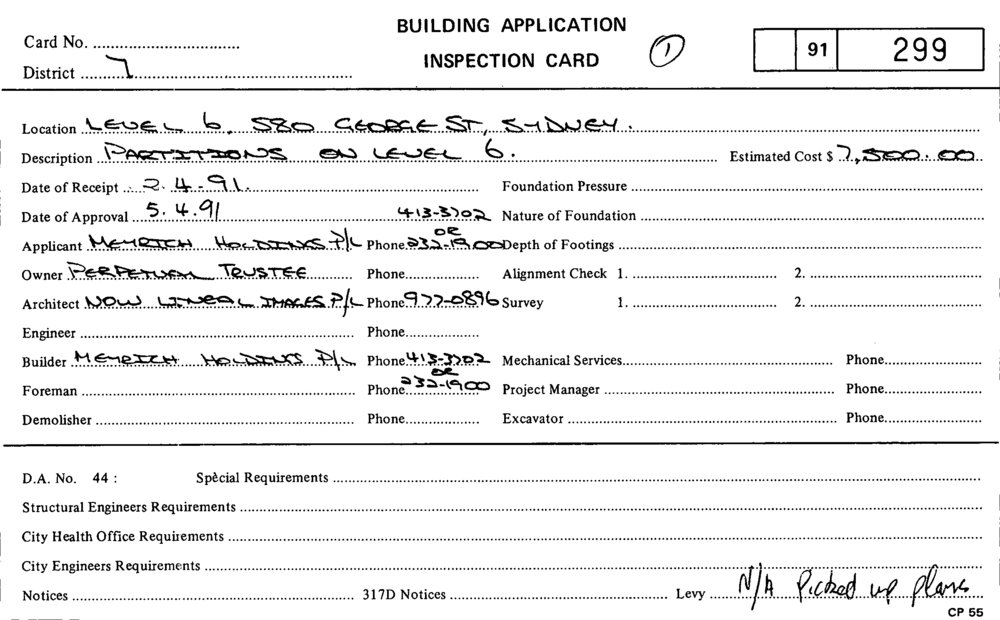 BUILDING APPLICATION
INSPECTION CARD
1
Card No. ....................
District ....7....................
91 299
Location LEVEL 6, 580 GEORGE ST, SYDNEY.
Description PARTITIONS ON LEVEL 6. Estimated Cost $ 7,500.00
Date of Receipt 2.4.91. Foundation Pressure ....................
Date of Approval 5.4.91 413-3702 Nature of Foundation ....................
OR
Applicant MEYRICH HOLDINGS P/L Phone 232-1900 Depth of Footings ....................
Owner PERPETUAL TRUSTEE Phone.................... Alignment Check 1. .................... 2. ....................
Architect NOW LINEAL IMAGES P/L Phone 977-0896 Survey 1. .................... 2. ....................
Engineer .................... Phone....................
Builder MEYRICH HOLDINGS P/L Phone 413-3702 Mechanical Services.................... Phone....................
OR
Foreman .................... Phone 232-1900 Project Manager .................... Phone....................
Demolisher .................... Phone.................... Excavator .................... Phone....................
D.A. No. 44 : Special Requirements ....................
Structural Engineers Requirements ....................
City Health Office Requirements ....................
City Engineers Requirements ....................
Notices .................... 317D Notices .................... Levy N/A Picked up plans
CP 55